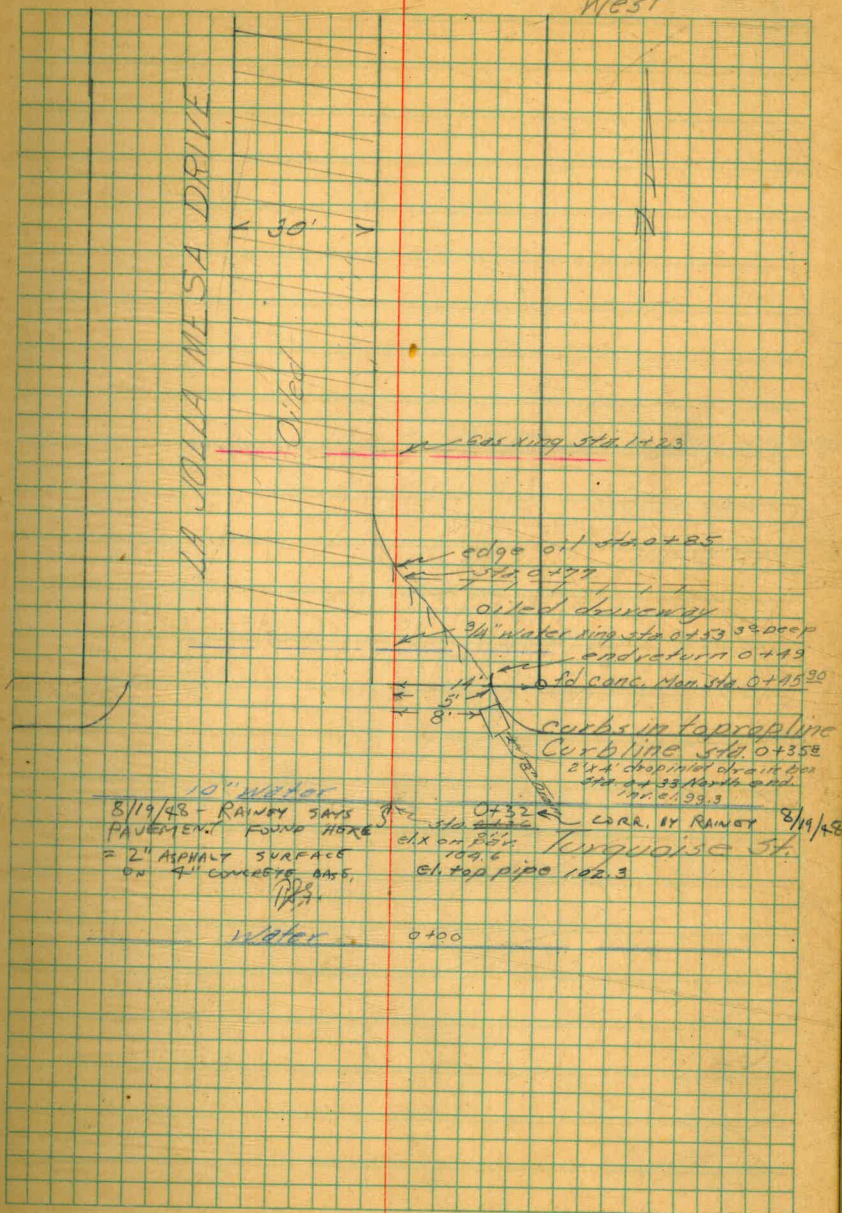 West
LA JOLLA MESA DRIVE
30'
Oiled
N
Gas xing sta. 1+23
edge oil sta. 0+85
sta. 0+77
oiled driveway
3/4" water xing sta 0+53 3' deep
end return 0+49
14'
fd conc. Mon. sta. 0+45.90
5'
8'
curbs in to prop line
Curb line sta. 0+35
2'x4' drop inlet drain box
Sta. 0+33 North end.
inv. el. 99.3
10" water
8/19/48 - RAINEY SAYS
PAVEMENT FOUND HERE
= 2" ASPHALT SURFACE
ON 4" CONCRETE BASE.
0+32
CORR. BY RAINEY 8/19/48
104.6
el. top pipe 102.3
Turquoise St.
Water
0+00